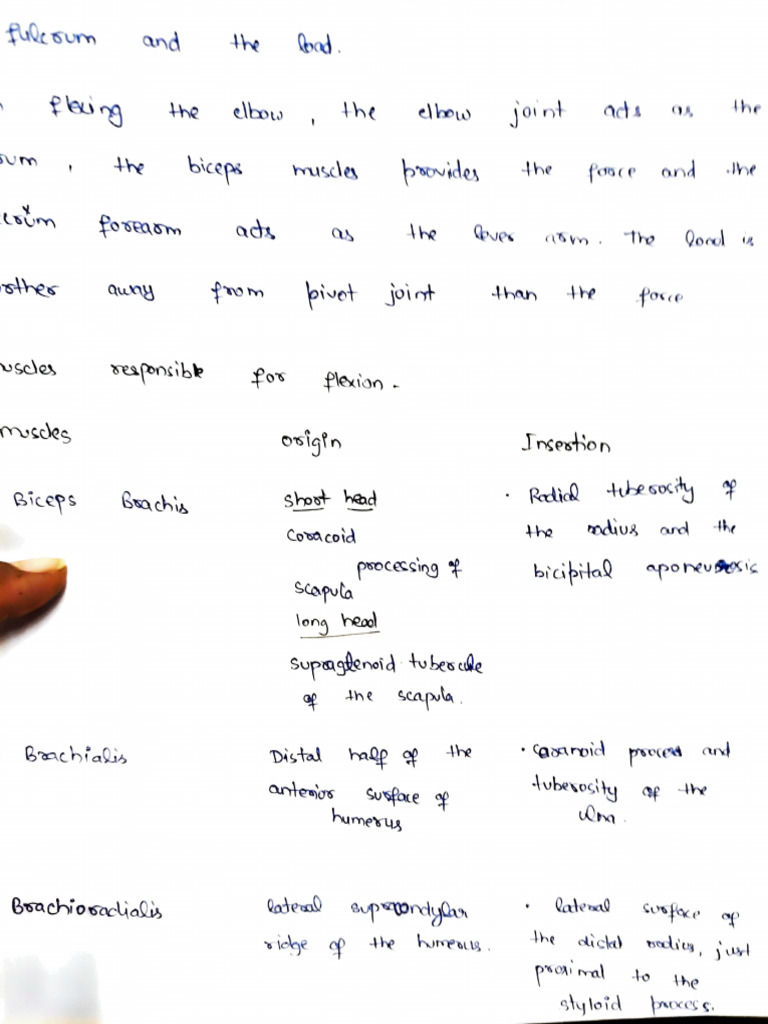 fulcrum and the load.
flexing the elbow, the elbow joint acts as the
um, the biceps muscles provides the force and the
crum forearm acts as the lever arm. The load is
rther away from pivot joint than the force
uscles responsible for flexion.
muscles origin Insertion
Biceps Brachis short head · Radial tuberosity of
coracoid the radius and the
processing of bicipital aponeurosis
scapula
long head
supraglenoid tubercule
of the scapula.
Brachialis Distal half of the · coranoid process and
anterior surface of tuberosity of the
humerus ulna.
Brachioradialis lateral supracondylar · lateral surface of
ridge of the humerus. the distal radius, just
proximal to the
styloid process.